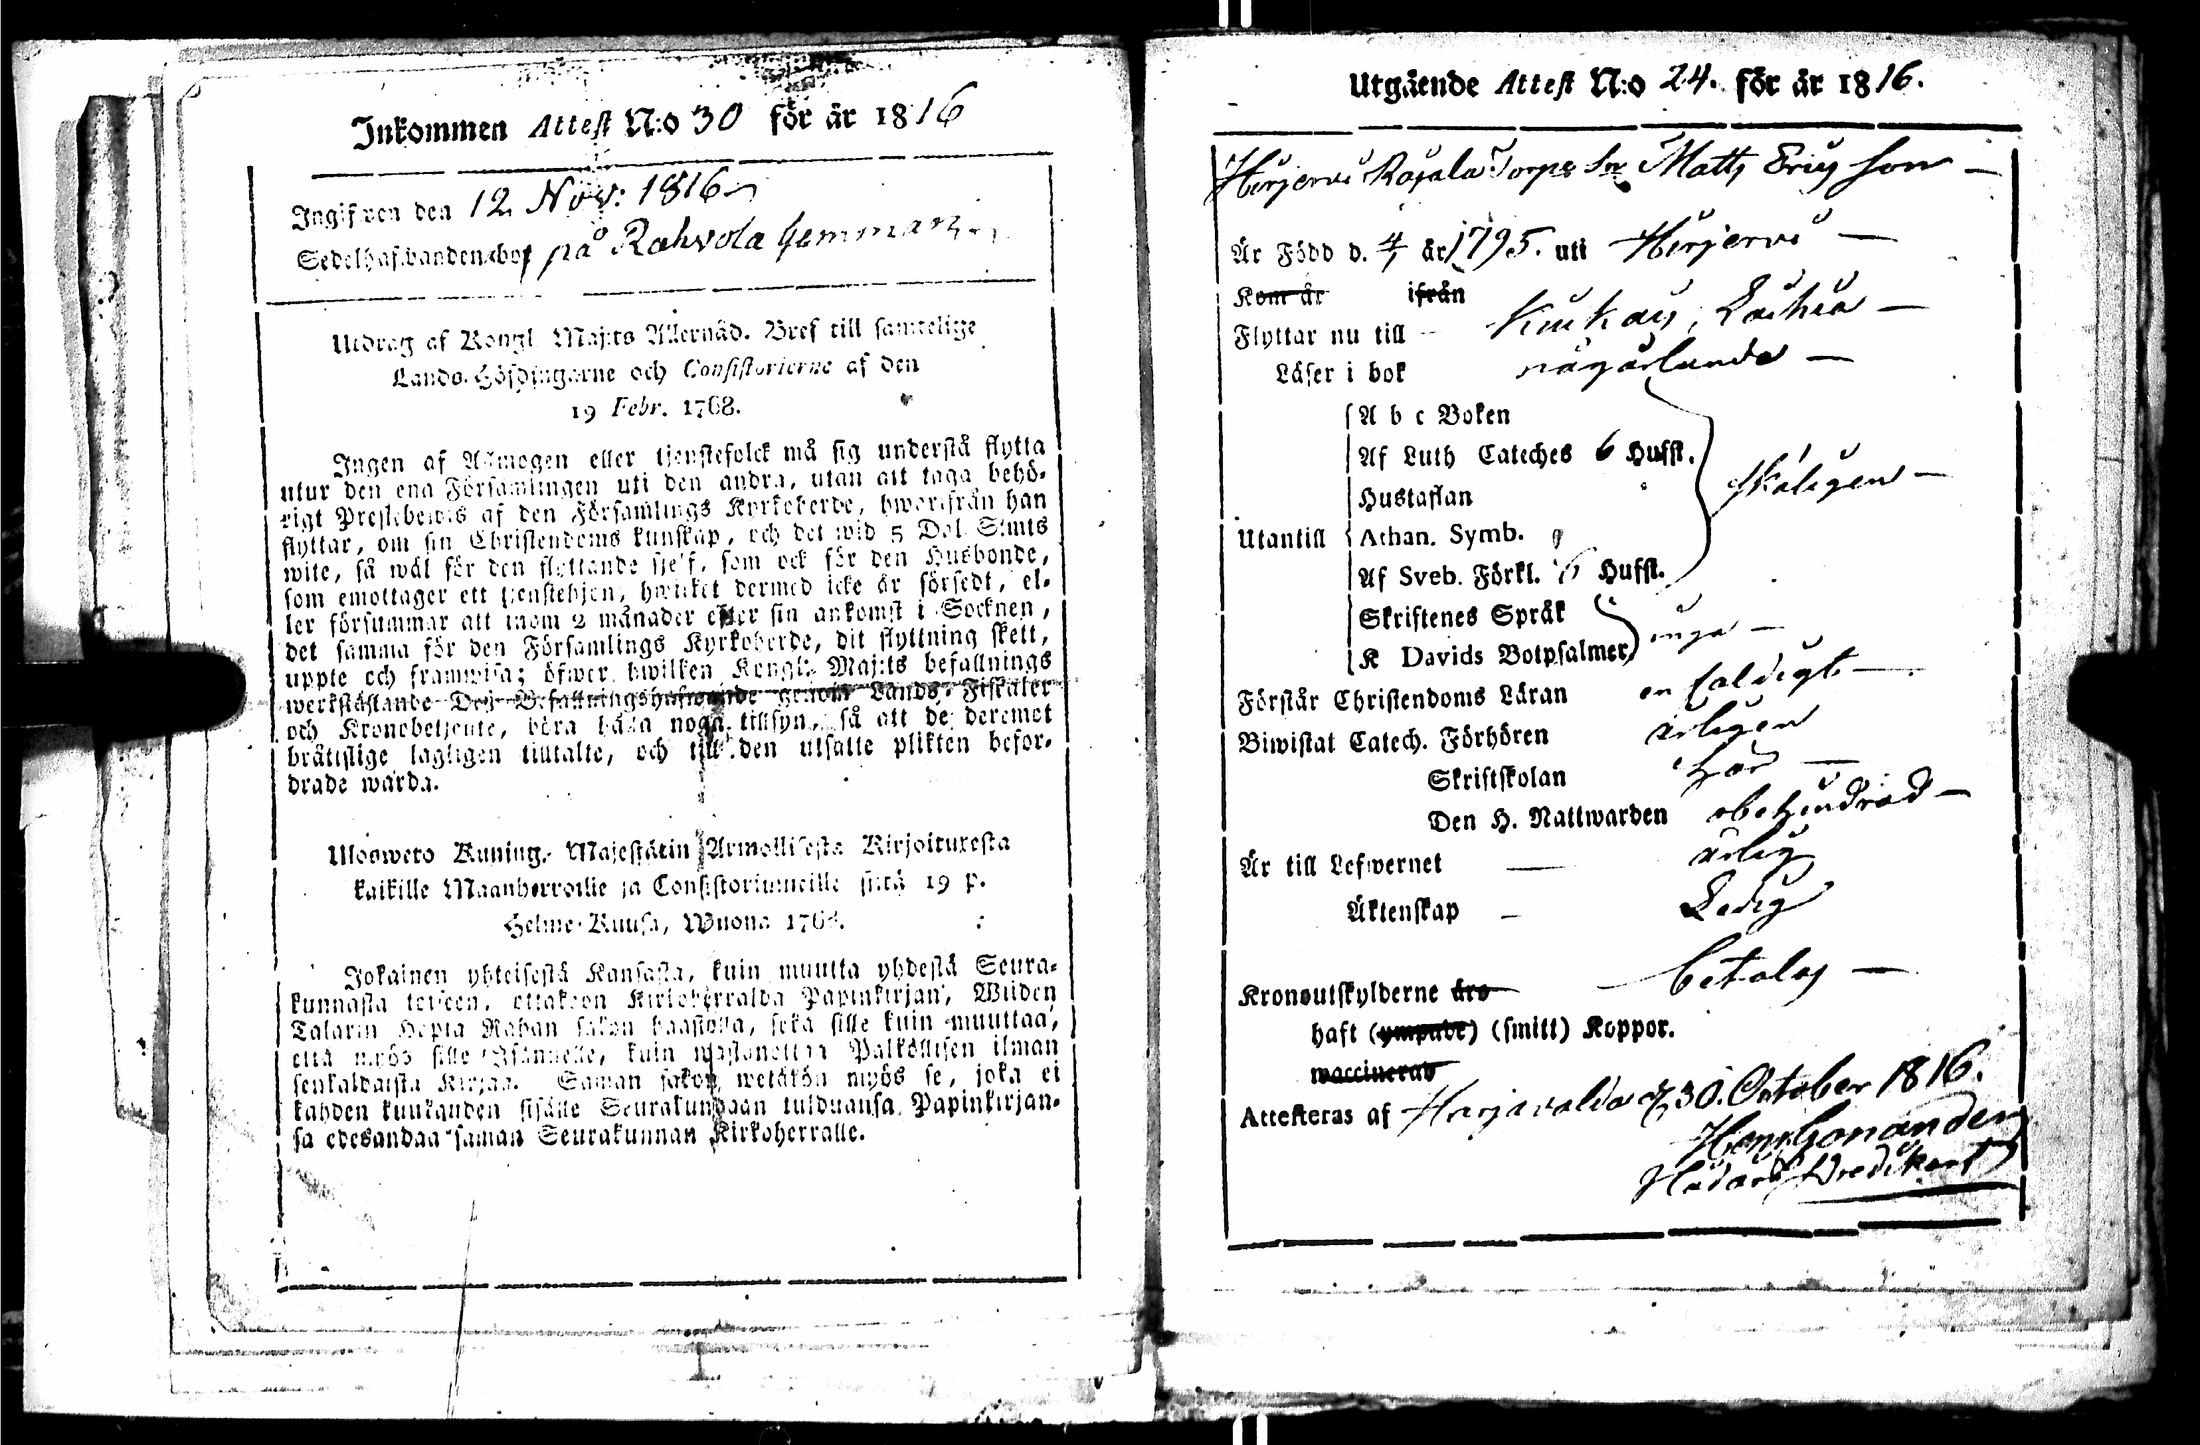 Inkommen Attest N:o 30 för år 1816
Ingifwen den 12 Nov: 1816
Sedelhafwandens bor på Rahvola hemman
Utdrag af Kongl. Maj:ts Allernåd. Bref till samtelige
Lands-Höfdingarne och Consistorierne af den
19 Febr. 1768.
Ingen af Allmogen eller tjenstefolck må sig understå flytta
utur den ena Församlingen uti den andra, utan att taga behö-
rigt Prestebewis af den Församlings Kyrkoherde, hworifrån han
flyttar, om sin Christendoms kunskap, och det wid 5 Dal. S:mts
wite, så wäl för den flyttande sjelf, som ock för den Husbonde,
som emottager ett tjenstehjon, hwilket dermed icke är försedt, el-
ler försummar att inom 2 månader efter sin ankomst i Socknen,
det samma för den Församlings Kyrkoherde, dit flyttning skett,
uppte och framwisa; öfwer hwilken Kongl. Maj:ts befallnings
werkställande Des Befallningshafwande genom Lands-Fiskaler
och Kronobetjente, böra hålla noga tillsyn, så att de deremot
bråttslige lagligen tiltalte, och till den utsatte plikten befor-
drade warda.
Uloswero Kuning. Majestätin Armollisesta Kirjoituxesta
kaikille Maanherroille ja Consistoriumeille siitä 19 p.
Helme-Kuusa, Wuonna 1768.
Jokainen yhteisestä Kansasta, kuin muutta yhdestä Seura-
kunnasta toiseen, ottakoon Kirkoherralda Papinkirjan, Wiiden
Talarin Hopia Rahan sakon haastolla, sekä sille kuin muuttaa,
että myös sille Isännelle, kuin wastanottaa Palkollisen ilman
senkaldaista Kirjaa. Saman sakon wetäkön myös se, joka ei
kahden kuukauden sisälle Seurakundaan tulduansa, Papinkirjan-
sa edesandaa saman Seurakunnan Kirkoherralle.
Utgående Attest N:o 24. för år 1816.
Hirjervi Rojala Torps Sn Matts Ericsson
Är Född d. 4 år 1795. uti Hirjervi
Kom år ifrån
Flyttar nu till Kiukais, Lauhia
Läser i bok någorlunda
A b c Boken
Af Luth Cateches 6 Hufst.
Hustaflan skäligen
Utantill Athan. Symb.
Af Sveb. Förkl. 6 Hufst.
Skriftenes Språk
K Davids Botpsalmer inga
Förstår Christendoms Läran enfaldigt
Biwistat Catech. Förhören årligen
Skriftskolan har
Den H. Nattwarden obehindrad
Är till Lefwernet ärlig
Äktenskap Ledig
Kronoutskylderne äro betalas
haft (ympade) (smitt) Koppor.
waccinerad
Attesteras af Harjavalda d. 30. October 1816.
Henr Gonander